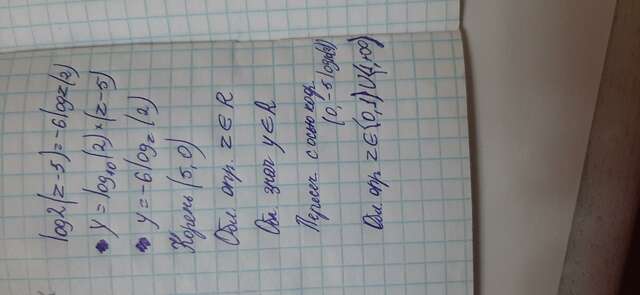 log2(z-5)=-6logz(2)
y=log10(2)*(z-5)
y=-6logz(2)
Корень (5,0)
Обл. опр. z∈R
Обл. знач y∈R
Пересеч. с осью коорд.
(0,-5log10(2))
Обл. опр. z∈(0,1)∪(1,+∞)